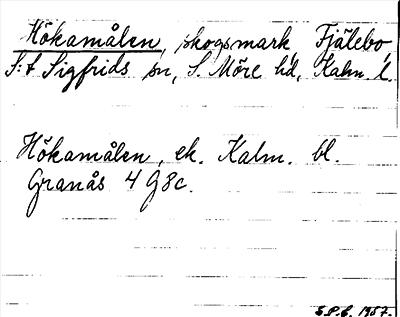 Hökamålen, skogsmark, Fjälebo,
S:t Sigfrids sn, S. Möre hd, Kalm. l.
Hökamålen, ek. Kalm. bl.
Granås 4 G 8c.
S.P.G. 1957.